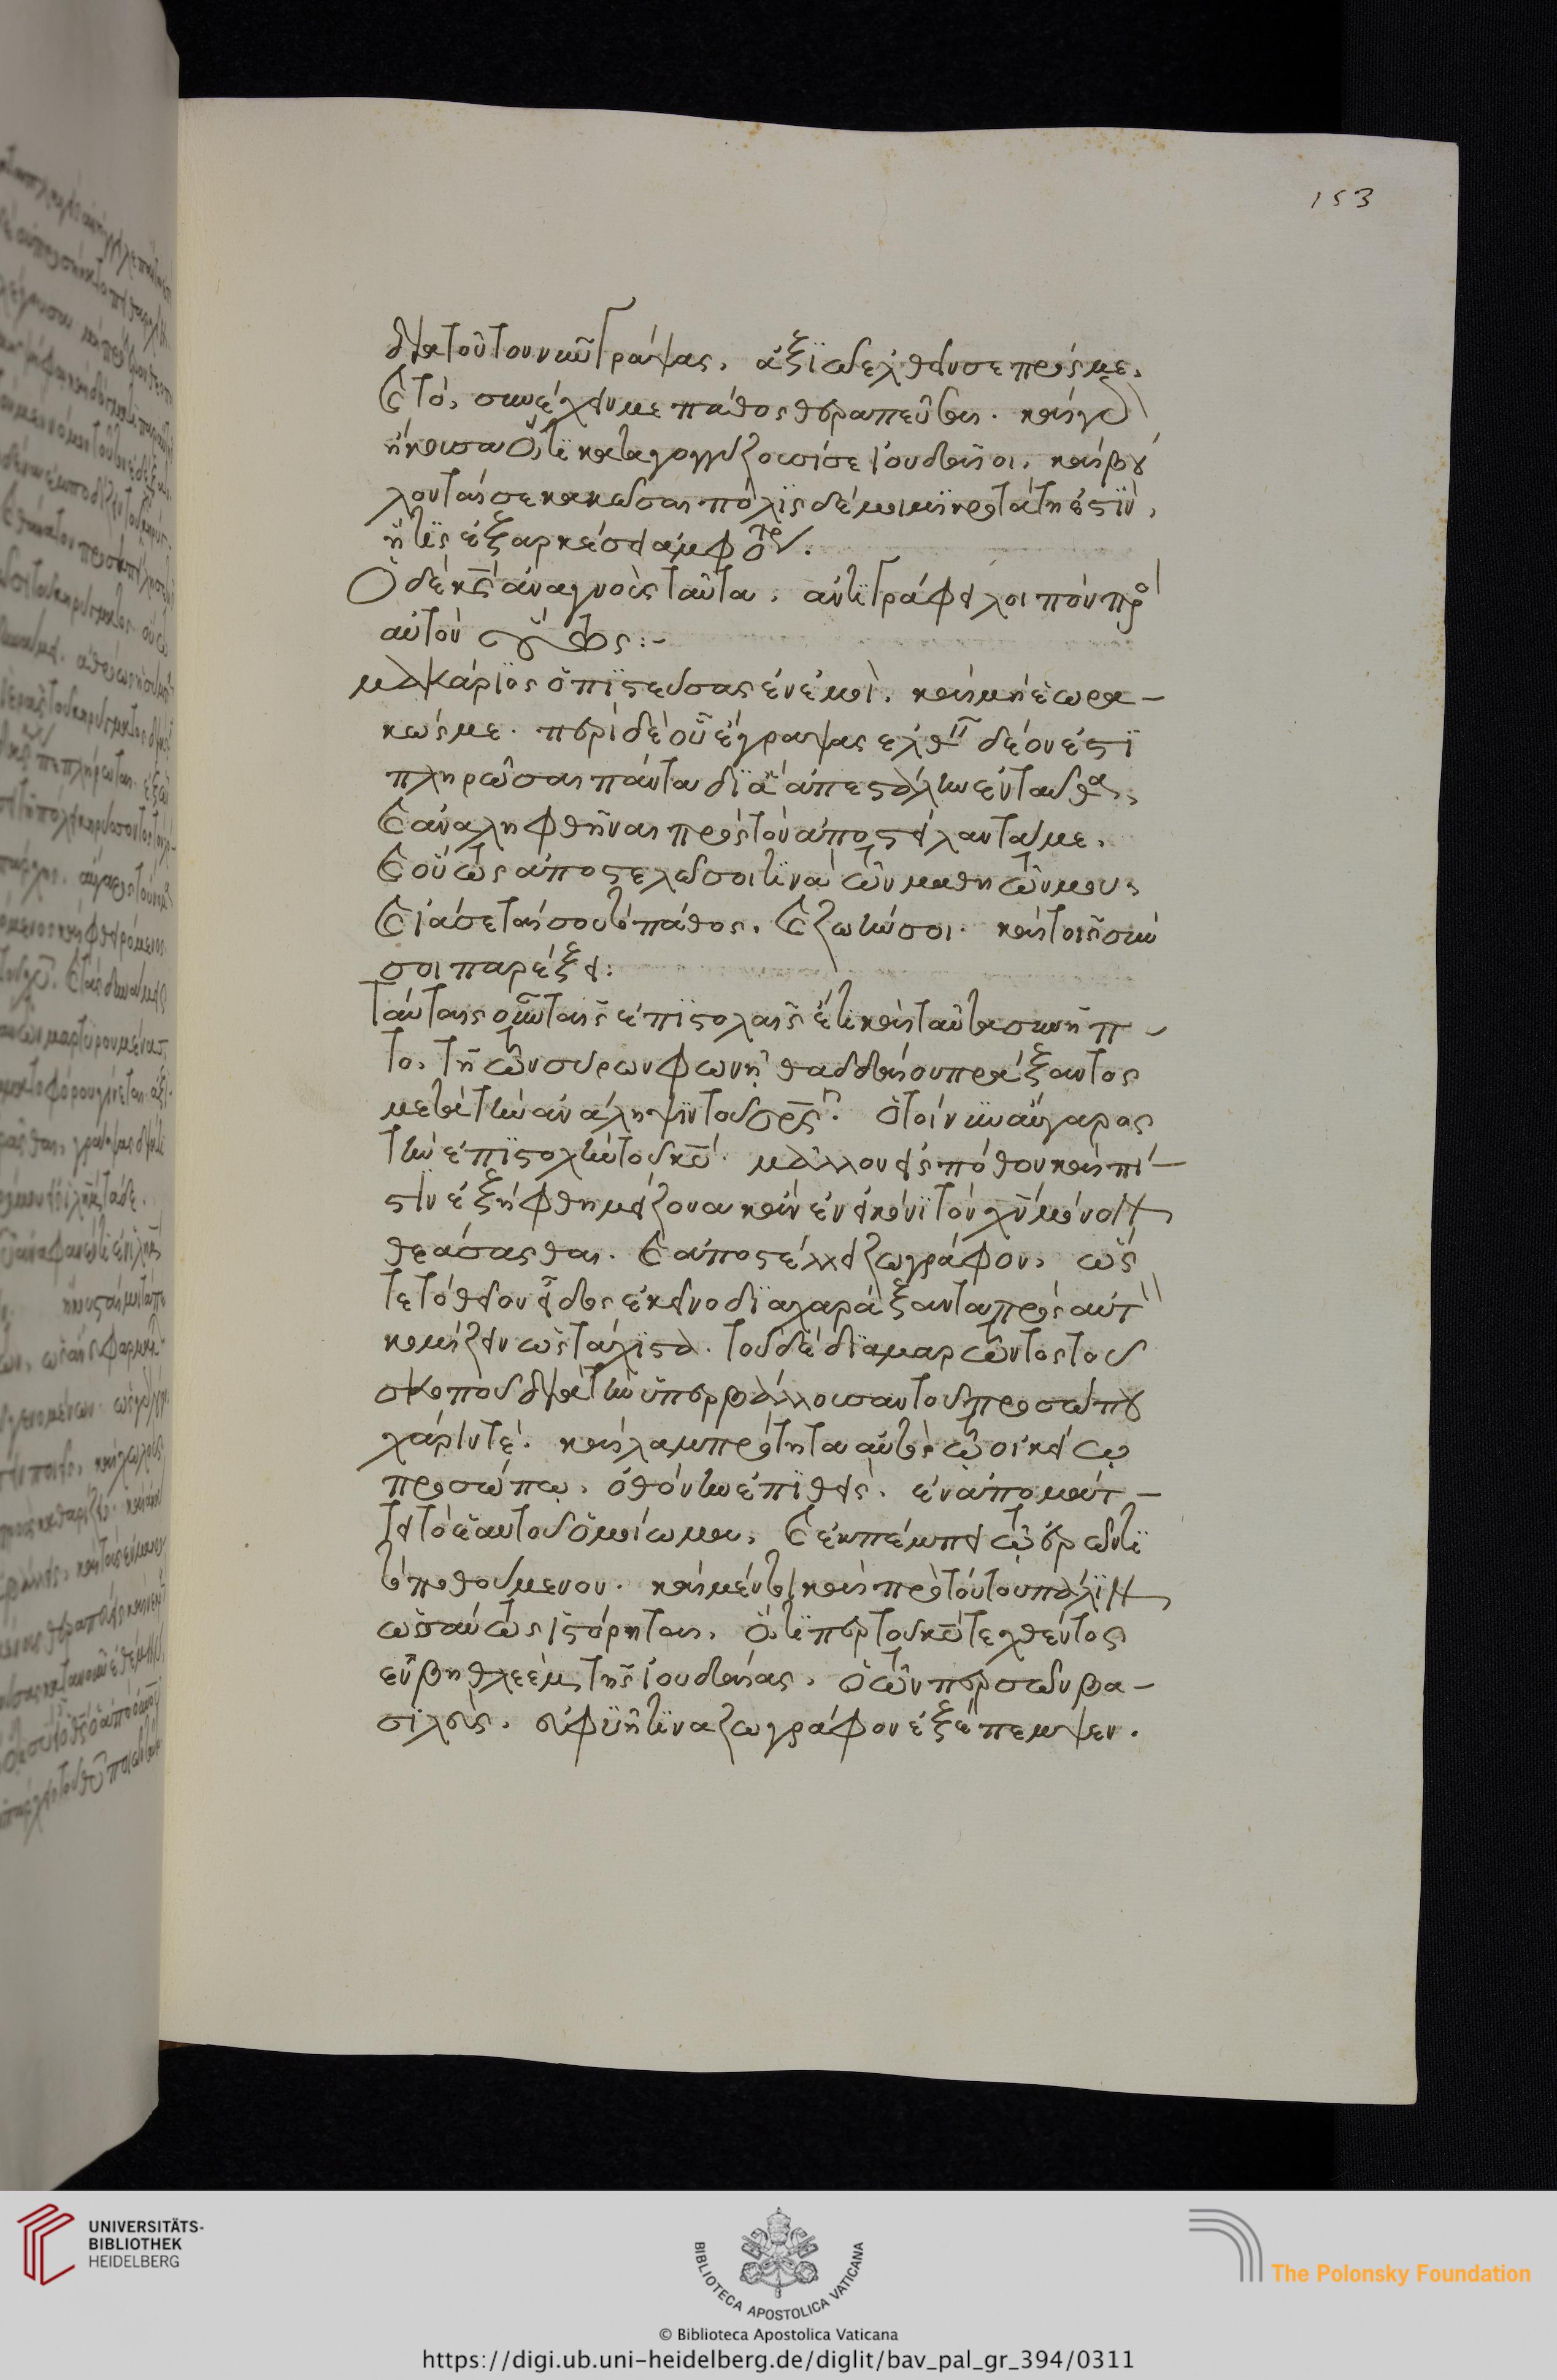 153
διὰ τοῦτο νῦν γράψας, ἀξιῶ ἐλθεῖν σε πρός με,
καὶ τὸ συνέχον με πάθος θεραπεῦσαι. καὶ γὰρ
ἤκουσα ὅτι καταγογγύζουσί σε ἰουδαῖοι, καὶ βού
λονταί σε κακῶσαι πόλις δέ μοι μικροτάτη ἐστὶν,
ἥτις ἐξαρκέσει ἀμφοτέροις.
Ὁ δὲ κς ἀναγνοὺς ταῦτα, ἀντιγράφει λοιπὸν πρὸς
αὐτὸν οὕτως:-
μακάριος ὁ πιστεύσας ἐν ἐμοὶ, καὶ μὴ ἑωρα-
κώς με. περὶ δὲ οὗ ἔγραψας ἐλθεῖν δέον ἐστὶ
πληρῶσαι πάντα δι' ἃ ἀπεστάλην ἐνταῦθα,
καὶ ἀναληφθῆναι πρὸς τὸν ἀποστείλαντά με.
καὶ οὕτως ἀποστελῶ σοι τινὰ τῶν μαθητῶν μου,
καὶ ἰάσεταί σου τὸ πάθος, καὶ ζωήν σοι καὶ τοῖς σὺν
σοι παρέξει:
ταύταις οὖν ταῖς ἐπιστολαῖς ἔτι καὶ ταῦτα συνῆπ-
το, τῇ τῶν σύρων φωνῇ θαδδαίου πράξαντος
μετὰ τὴν ἀνάληψιν τοῦ σρς
τὴν ἐπιστολὴν τοῦ κυ μᾶλλον εἰς πόθον καὶ πί-
στιν ἐξήφθη μείζονα κἂν ἐν εἰκόνι τὸν χν μόνον
θεάσασθαι. καὶ ἀποστέλλει ζωγράφον, ὥς
τε τὸ θεῖον εἶδος ἐκεῖνο διαχαράξαντα πρὸς αὐτὸν
κομίζειν ὡς τάχιστα. τοῦ δὲ διαμαρτῶντος τοῦ
σκοποῦ διὰ τὴν ὑπερβάλλουσαν τοῦ προσώπου
χάριν τέ. καὶ λαμπρότητα αὐτὸς τῷ οἰκείῳ
προσώπῳ, ὀθόνην ἐπιθεὶς, ἐναπομάτ-
τει τὸ ἑαυτοῦ ὁμοίωμα, καὶ ἐκπέμπει τῷ ἐρῶντι
τὸ ποθούμενον. καὶ μέντοι καὶ πρὸ τούτου πάλιν
ὡσαύτως ἱστόρηται, ὅτιπερ τοῦ κυ τεχθέντος
ἐν βηθλεὲμ τῆς ἰουδαίας, ὁ τῶν περσῶν βα-
σιλεὺς, εὐφυῆ τινα ζωγράφον ἐξέπεμψεν.
UNIVERSITÄTS-
BIBLIOTHEK
HEIDELBERG
BIBLIOTECA APOSTOLICA VATICANA
The Polonsky Foundation
© Biblioteca Apostolica Vaticana
https://digi.ub.uni-heidelberg.de/diglit/bav_pal_gr_394/0311